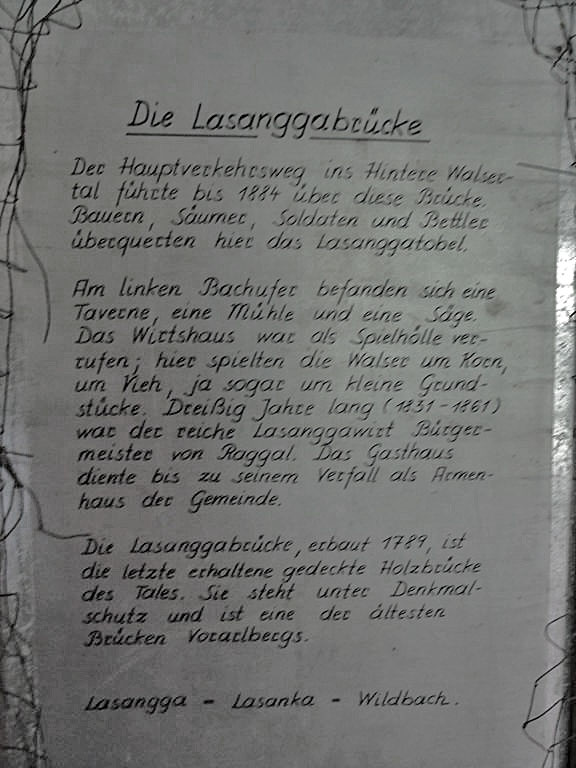 Die Lasanggabrücke
Der Hauptverkehrsweg ins Hintere Walser-
tal führte bis 1884 über diese Brücke.
Bauern, Säumer, Soldaten und Bettler
überquerten hier das Lasanggatobel.
Am linken Bachufer befanden sich eine
Taverne, eine Mühle und eine Säge.
Das Wirtshaus war als Spielhölle ver-
rufen; hier spielten die Walser um Korn,
um Vieh, ja sogar um kleine Grund-
stücke. Dreißig Jahre lang (1831-1861)
war der reiche Lasanggawirt Bürger-
meister von Raggal. Das Gasthaus
diente bis zu seinem Verfall als Armen-
haus der Gemeinde.
Die Lasanggabrücke, erbaut 1789, ist
die letzte erhaltene gedeckte Holzbrücke
des Tales. Sie steht unter Denkmal-
schutz und ist eine der ältesten
Brücken Vorarlbergs.
Lasangga - Lasanka - Wildbach.